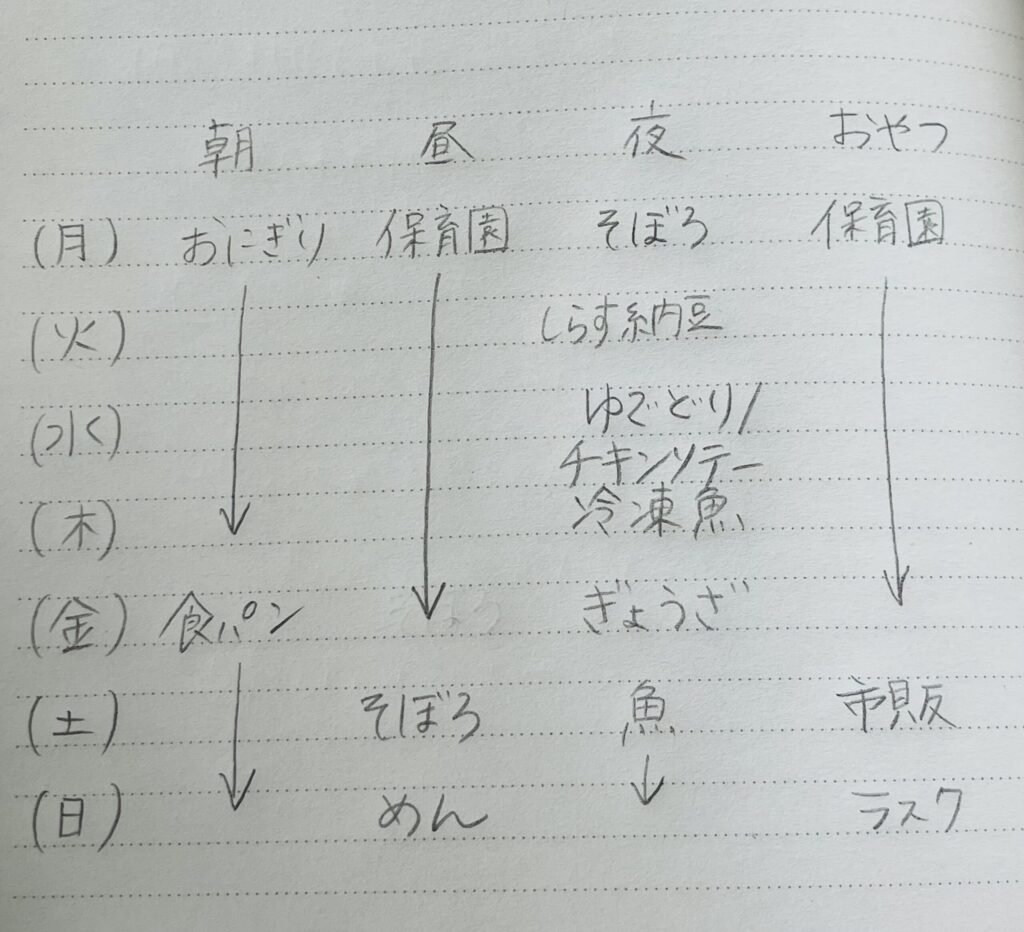 朝 昼 夜 おやつ
(月) おにぎり 保育園 そぼろ 保育園
(火) しらす納豆
(水) ゆでどり/
チキンソテー
(木) 冷凍魚
(金) 食パン ぎょうざ
(土) そぼろ 魚 市販
(日) めん ラスク